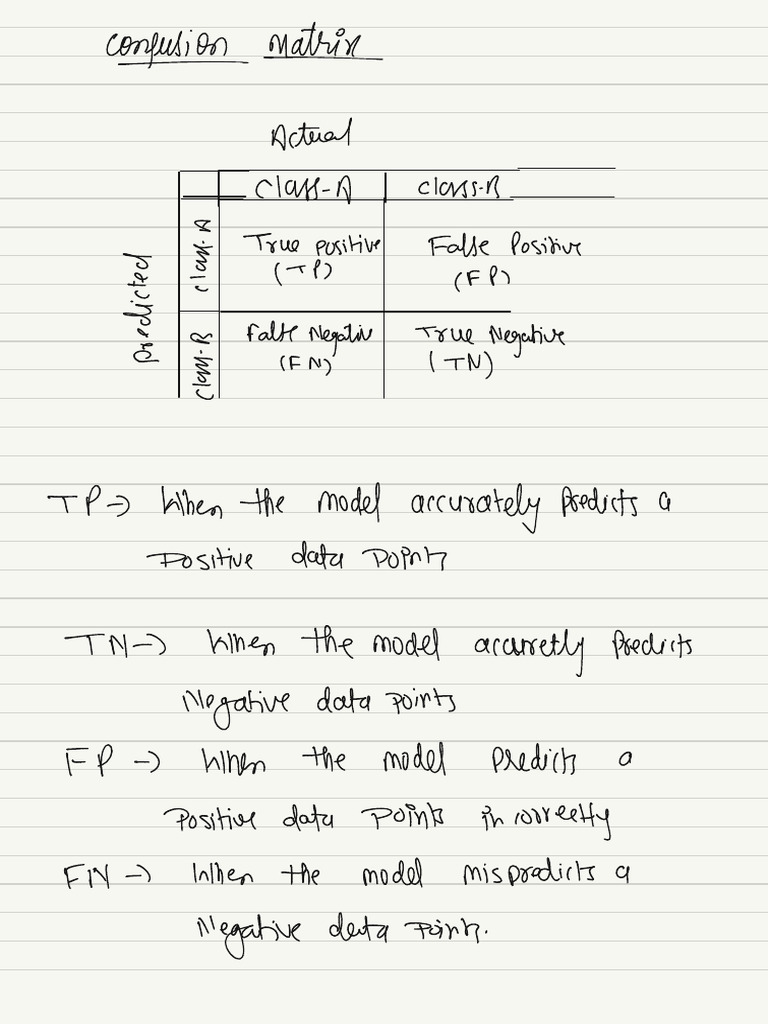 Confusion Matrix
Actual
Class-A Class-B
Predicted
Class-A
True positive False Positive
(TP) (FP)
Class-B
False Negativ True Negative
(FN) (TN)
TP → When the model accurately predicts a
Positive data point
TN → When the model accuretly predicts
Negative data points
FP → When the model predicts a
Positive data points incorrectly
FN → When the model mispredicts a
Negative data point.